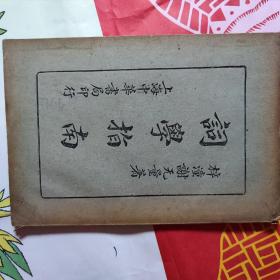 梓潼謝无量著
詞學指南
上海中華書局印行